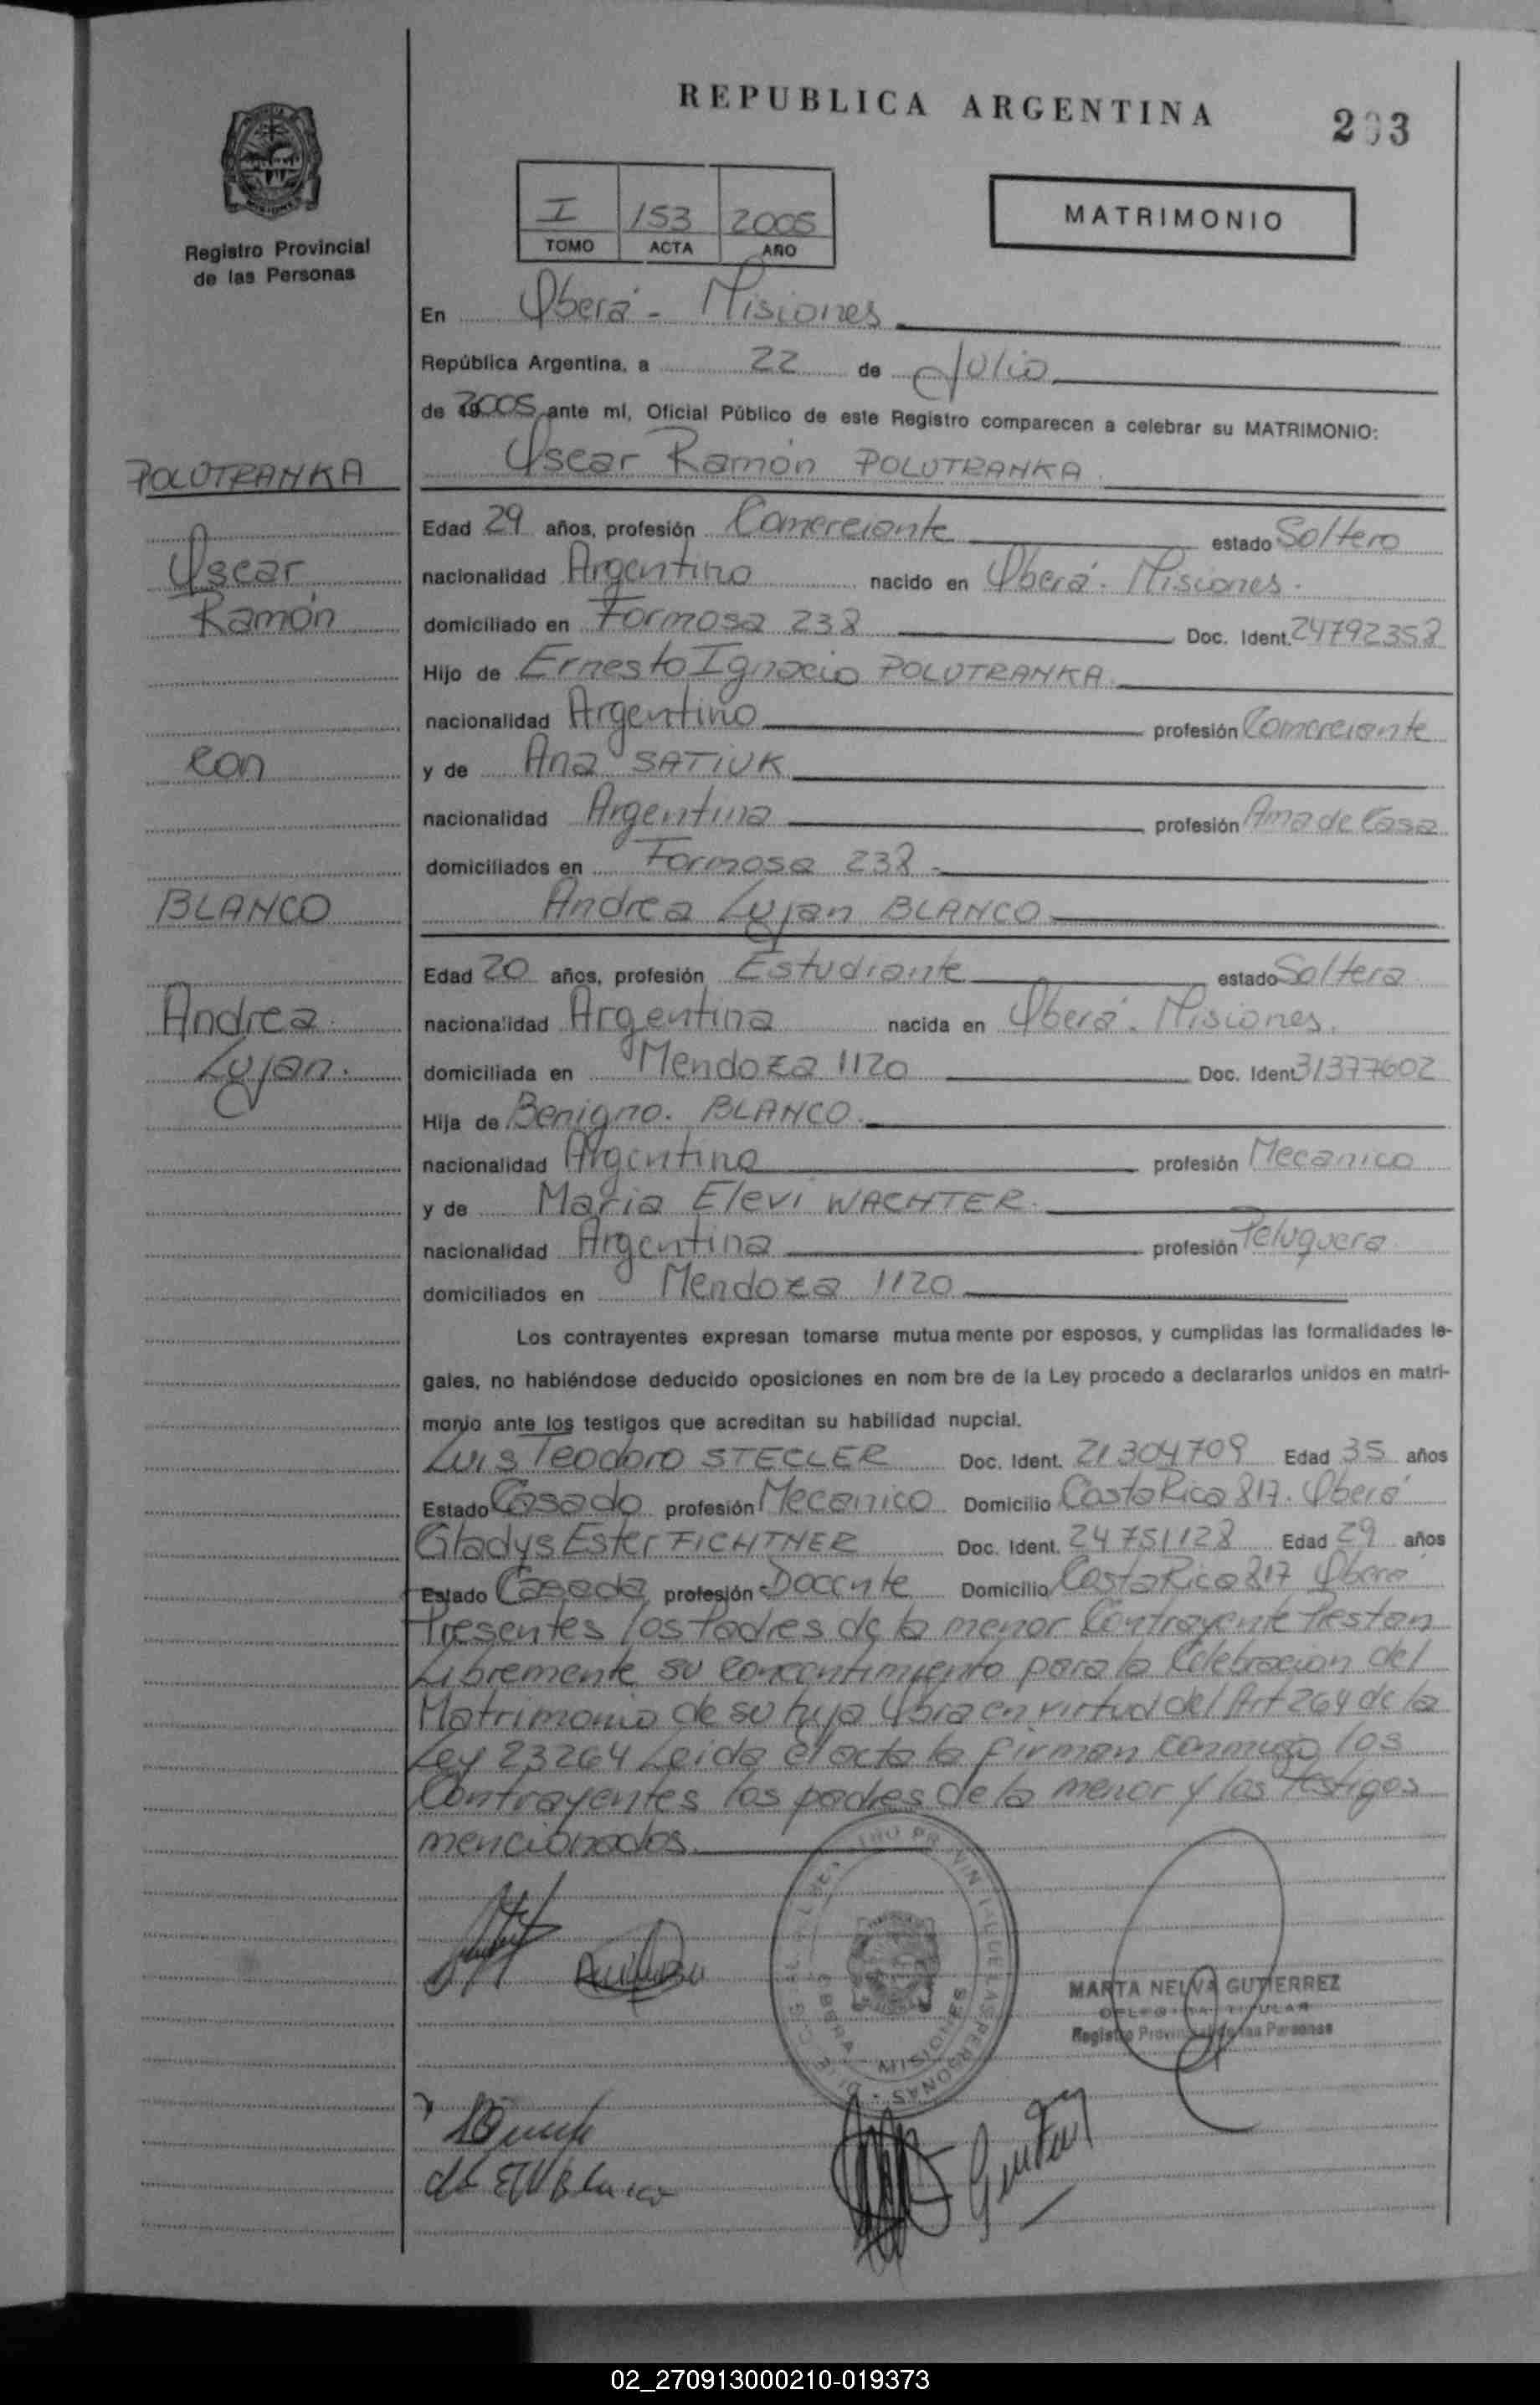 REPUBLICA ARGENTINA
Registro Provincial
de las Personas
I 153 2005
TOMO ACTA AÑO
MATRIMONIO
En Oberá - Misiones
República Argentina, a 22 de Julio
de 2005 ante mí, Oficial Público de este Registro comparecen a celebrar su MATRIMONIO:
POLUTRANKA
Oscar Ramón POLUTRANKA
Edad 29 años, profesión Comerciante estado Soltero
Oscar
nacionalidad Argentino nacido en Oberá. Misiones.
Ramón
domiciliado en Formosa 238 Doc. Ident. 24792358
Hijo de Ernesto Ignacio POLUTRANKA
nacionalidad Argentino profesión Comerciante
con
y de Ana SATIUK
nacionalidad Argentina profesión Ama de Casa
domiciliados en Formosa 238 -
BLANCO
Andrea Lujan BLANCO
Edad 20 años, profesión Estudiante estado Soltera
Andrea
nacionalidad Argentina nacida en Oberá. Misiones.
Lujan.
domiciliada en Mendoza 1120 Doc. Ident 31377602
Hija de Benigno. BLANCO.
nacionalidad Argentino profesión Mecanico
y de Maria Elevi WACHTER.
nacionalidad Argentina profesión Peluquera
domiciliados en Mendoza 1120
Los contrayentes expresan tomarse mutua mente por esposos, y cumplidas las formalidades le-
gales, no habiéndose deducido oposiciones en nom bre de la Ley procedo a declararlos unidos en matri-
monio ante los testigos que acreditan su habilidad nupcial.
Luis Teodoro STECLER Doc. Ident. 21304709 Edad 35 años
Estado Casado profesión Mecanico Domicilio Costa Rica 817. Oberá
Gladys Ester FICHTNER Doc. Ident. 24751128 Edad 29 años
Estado Casada profesión Docente Domicilio Costa Rica 817 Oberá
Presentes los Padres de la menor Contrayente Prestan
Libremente su concentimiento para la Celebracion del
Matrimonio de su hija Obra en virtud del Art 264 de la
Ley 23264 Leida el acta la firman conmigo los
Contrayentes los padres de la menor y los testigos
mencionados.
MARTA NELVA GUTIERREZ
DELEGADA TITULAR
Registro Provincial de las Personas
02_270913000210-019373